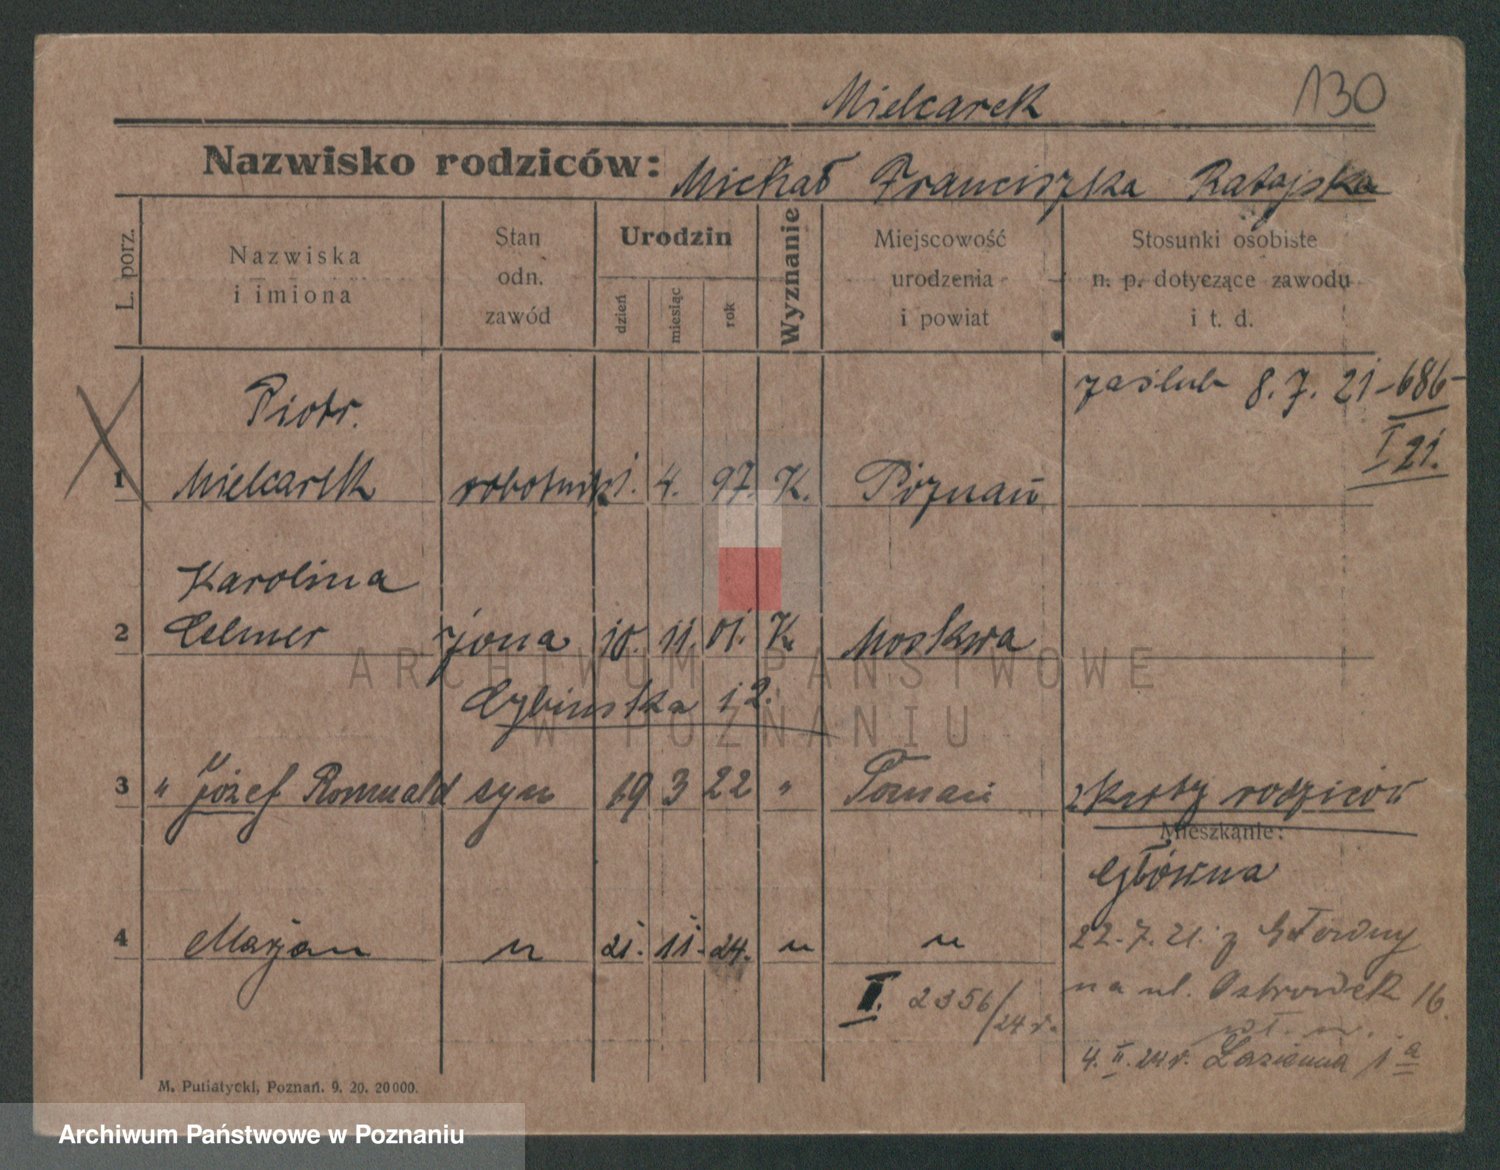 Mielcarek 130
Nazwisko rodziców: Michał Franciszka Ratajska
L. porz.
Nazwiska
i imiona
Stan
odn.
zawód
Urodzin
dzień
miesiąc
rok
Wyznanie
Miejscowość
urodzenia
i powiat
Stosunki osobiste
n. p. dotyczące zawodu
i t. d.
Piotr. zaślub 8. 7. 21 - 686-
I 21.
1 Mielcarek robotnik 1. 4. 97. K. Poznań
Karolina
2 Celmer żona 10. 11. 01. K. Moskwa
Cybinska 12.
3 " Józef Romuald syn 19 3 22 " Poznań z karty rodziców
Mieszkanie:
Główna
4 Marjan " 21. 11. 24. " "
22. 7. 21. z Główny
I. 2356/24 r. na ul. Ostrowek 16.
4. II. 24 r. Łazienna 1a
M. Putiatycki, Poznań. 9. 20. 20000.
ARCHIWUM PAŃSTWOWE
W POZNANIU
Archiwum Państwowe w Poznaniu